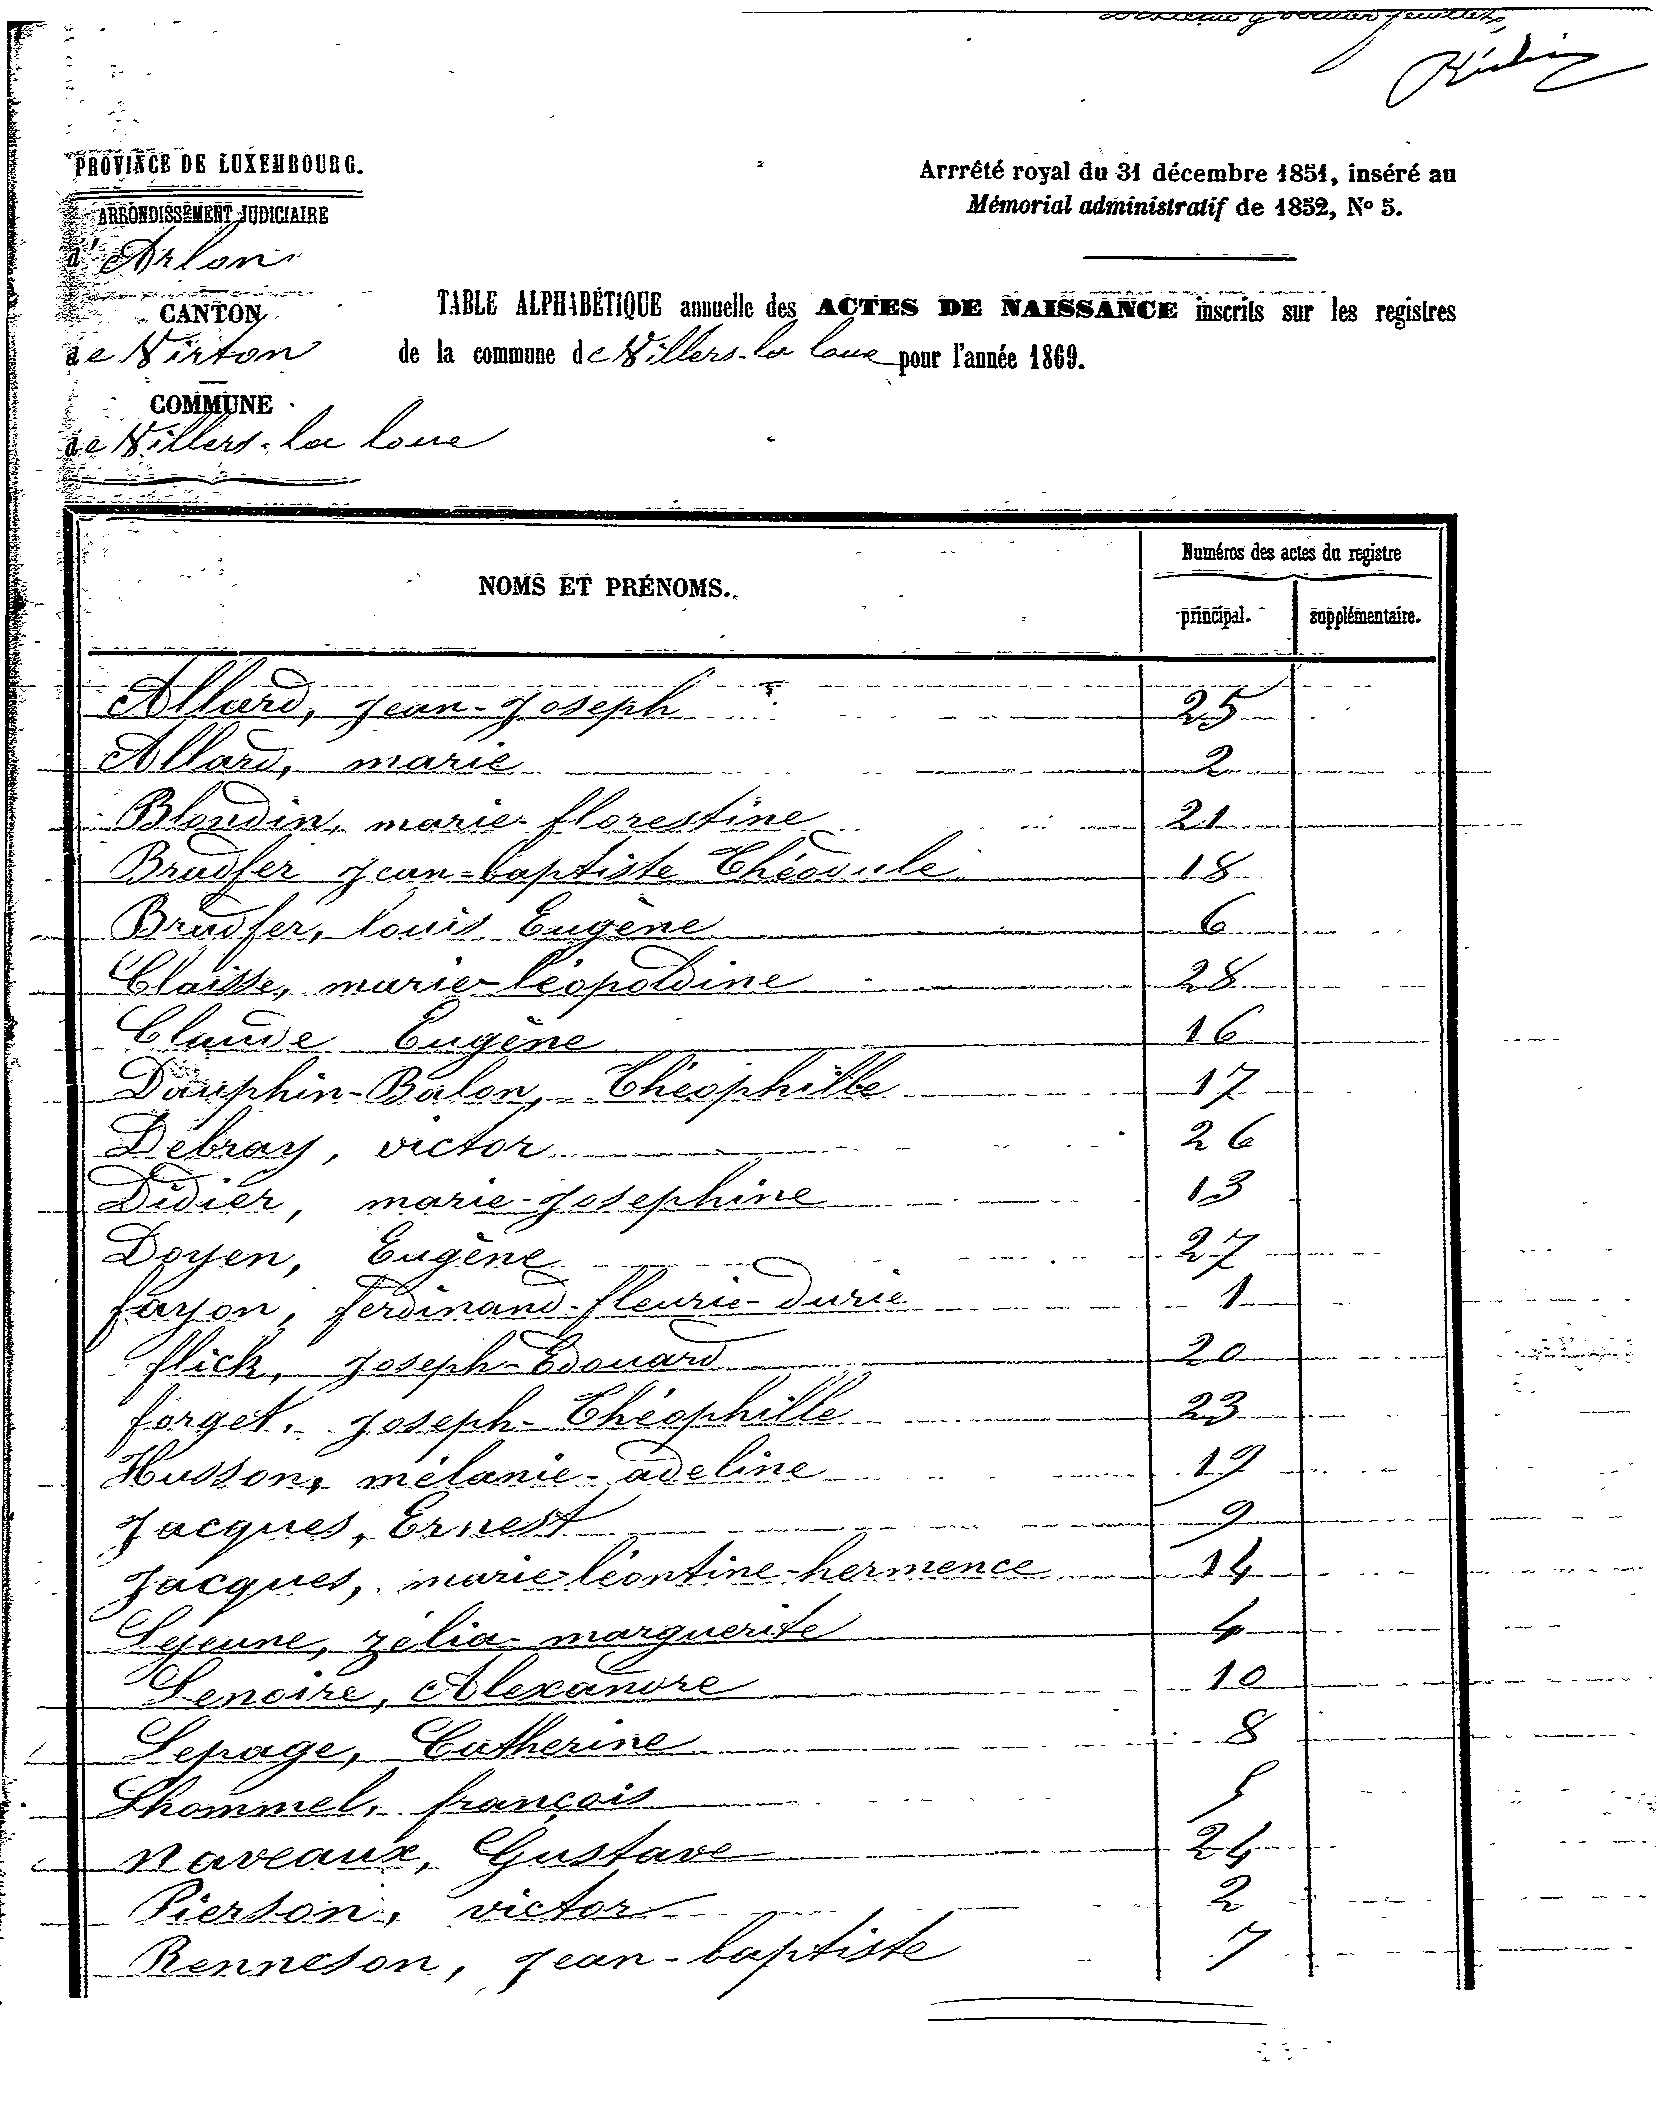 PROVINCE DE LUXEMBOURG.
ARRONDISSEMENT JUDICIAIRE
d'Arlon
CANTON
de Virton
COMMUNE
de Villers-la loue
Arrrêté royal du 31 décembre 1851, inséré au
Mémorial administratif de 1852, No 5.
TABLE ALPHABÉTIQUE annuelle des ACTES DE NAISSANCE inscrits sur les registres
de la commune de Villers-la loue pour l'année 1869.
NOMS ET PRÉNOMS.
Numéros des actes du registre
principal. supplémentaire.
Allard, Jean-Joseph 25
Allard, marie 2
Blondin, marie-florestine 21
Bradfer Jean-baptiste Théodule 18
Bradfer, louis Eugène 6
Claisse, marie-léopoldine 28
Claude Eugène 16
Dauphin-Balon, Théophille 17
Debray, victor 26
Didier, marie-Josephine 13
Doyen, Eugène 27
fayon, ferdinand-fleurie-durie 1
flick, Joseph-Edouard 20
forget, Joseph-Théophille 23
Husson, mélanie-adeline 19
Jacques, Ernest 9
Jacques, marie léontine-hermence 14
Lejeune, zélia-marguerite 4
Lenoire, Alexandre 10
Lepage, Catherine 8
Lhommel, françois 5
Naveaux, Gustave 24
Pierson, victor 2
Renneson, Jean-baptiste 7